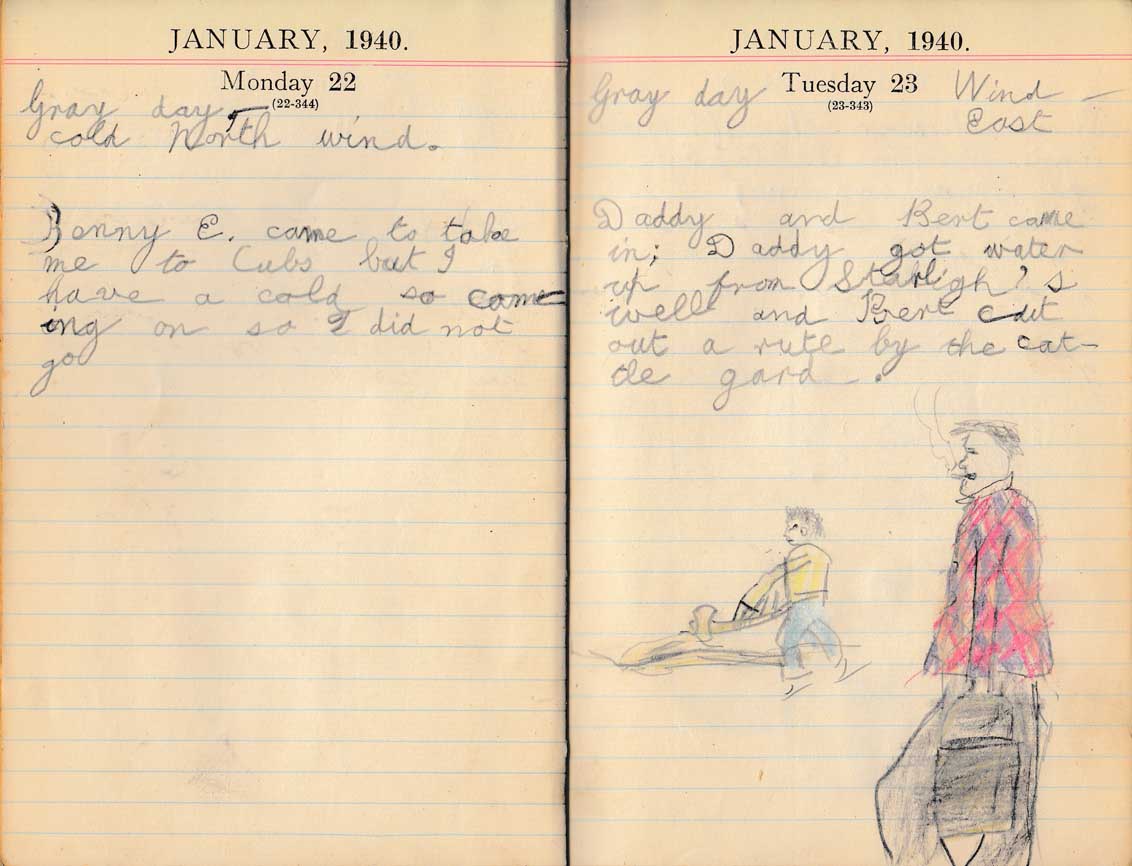 JANUARY, 1940.
Monday 22
(22-344)
Gray day,
cold North wind.
Benny E. came to take
me to Cubs but I
have a cold so come
ing on so I did not
go
JANUARY, 1940.
Tuesday 23
(23-343)
Gray day Wind —
East
Daddy and Bert came
in; Daddy got water
up from Starligh's
well and Bert cut
out a rute by the cat-
tle gard.